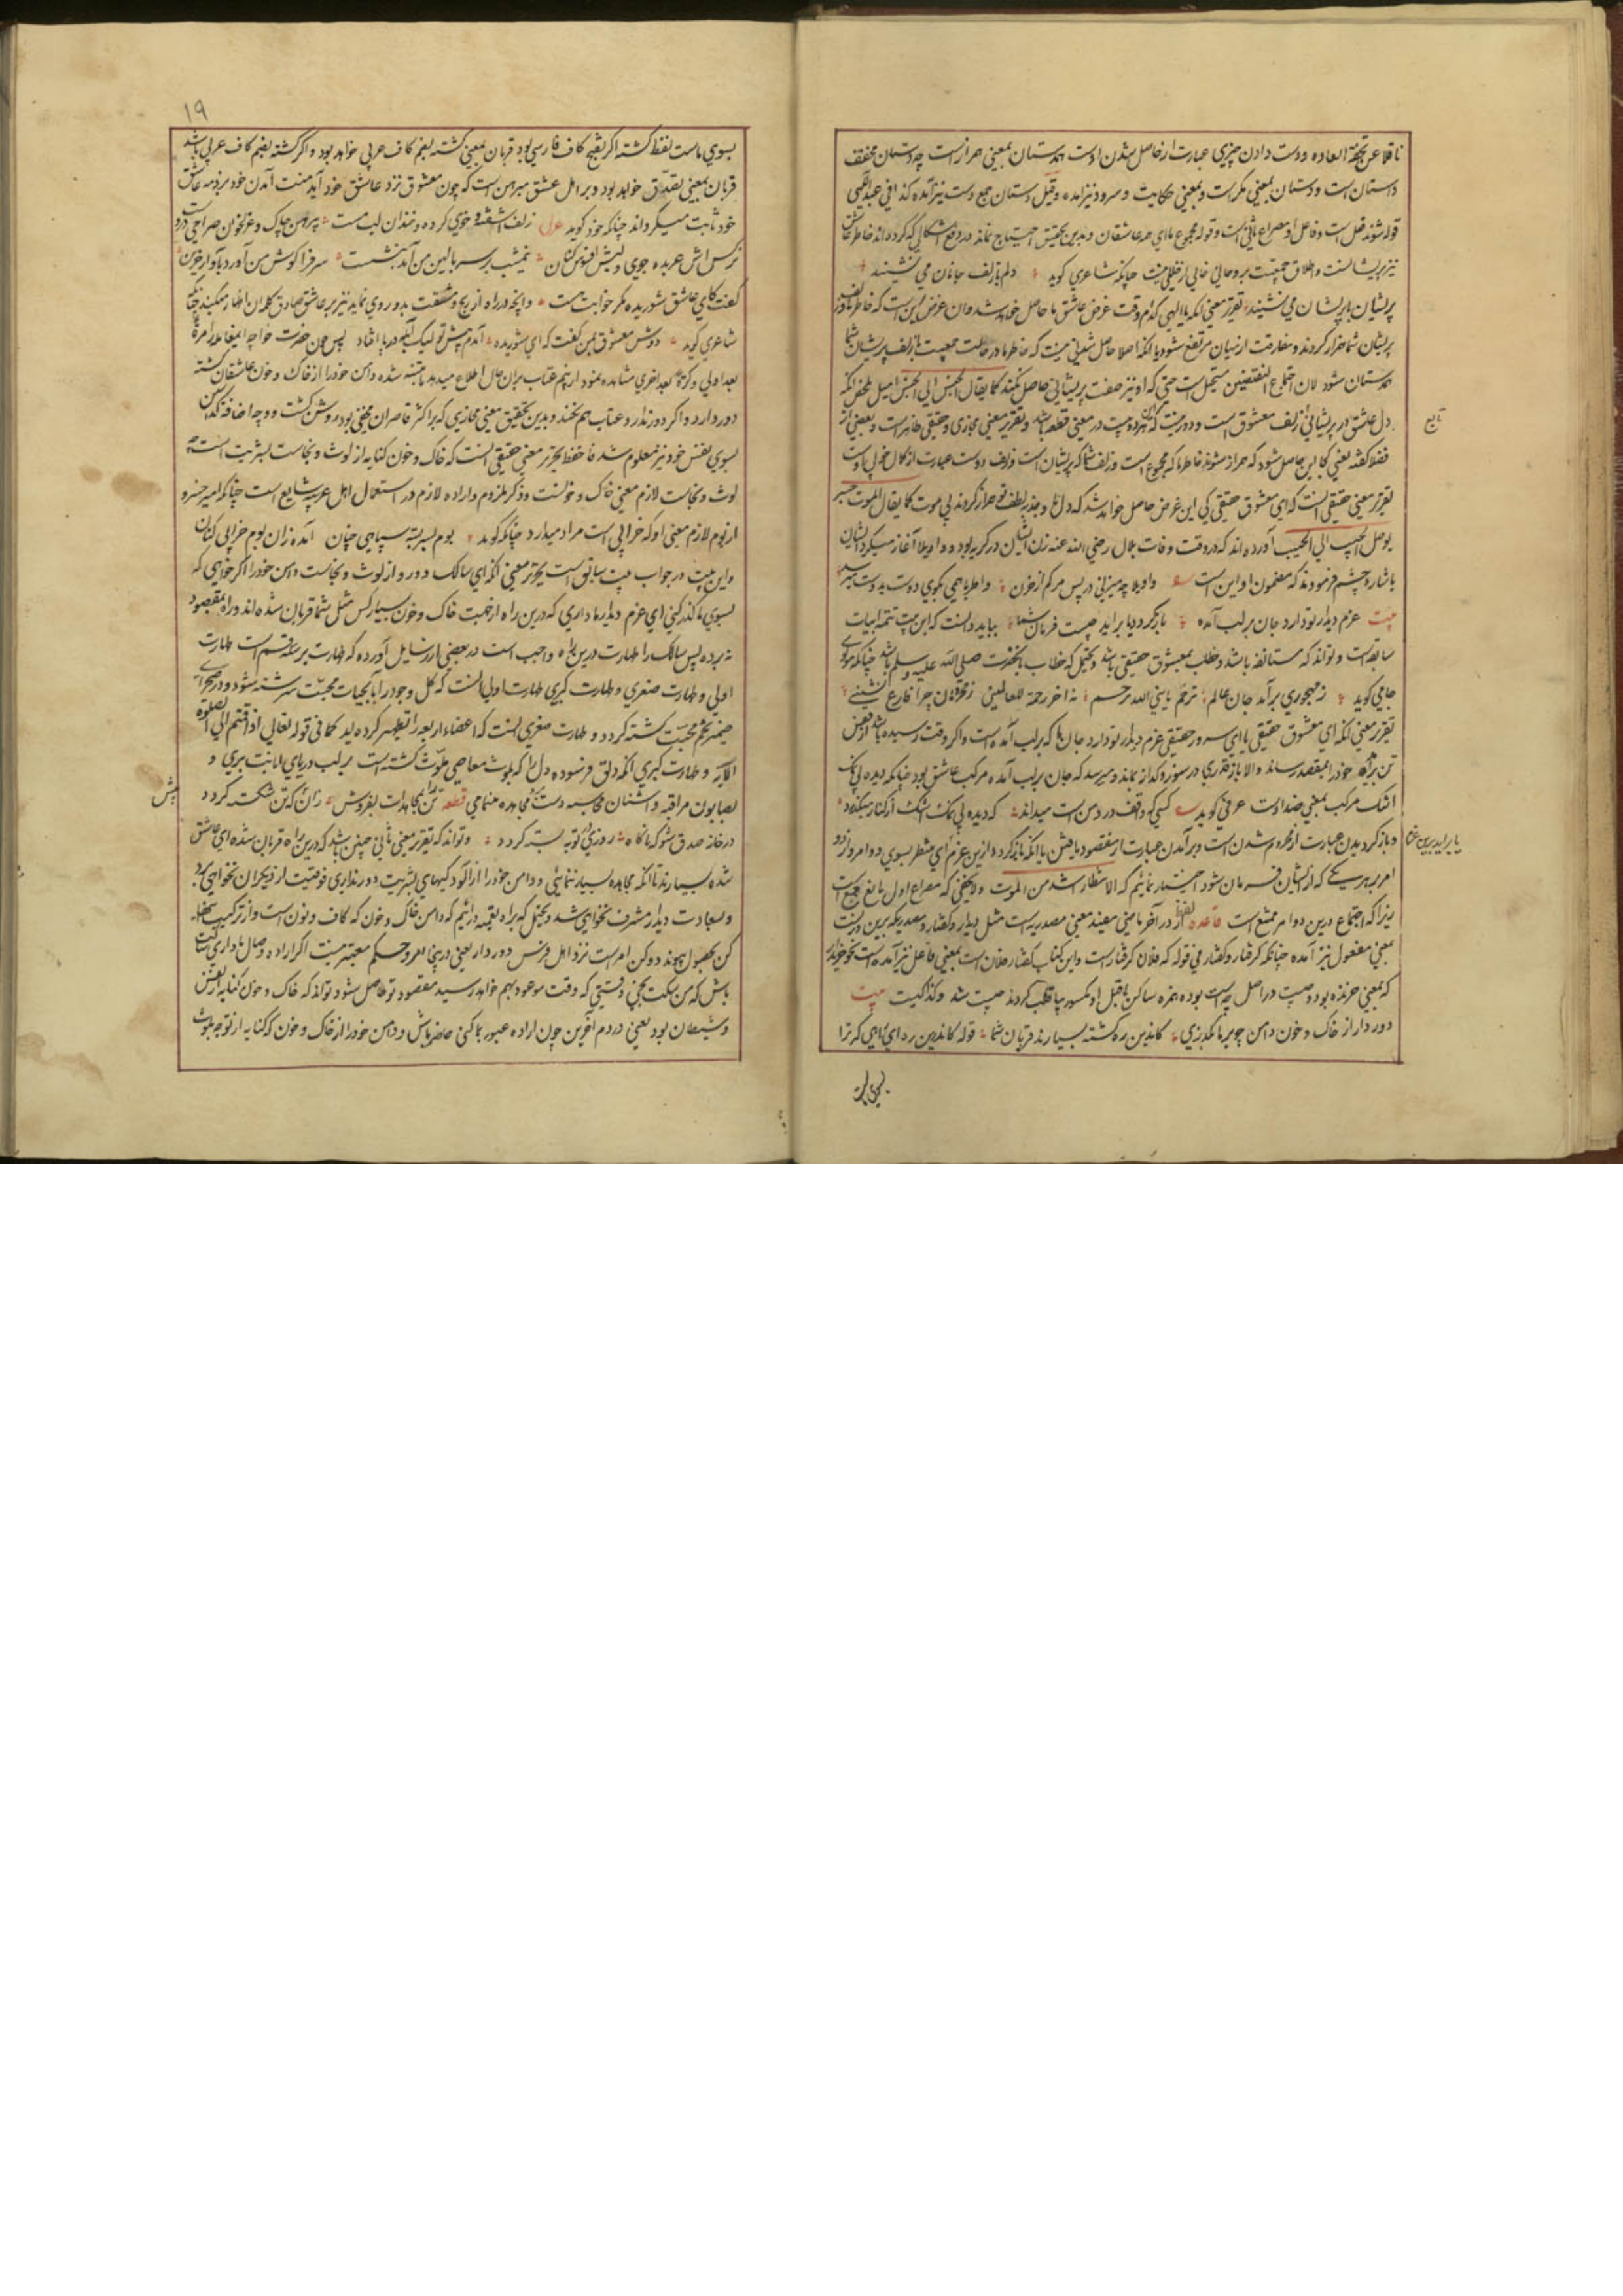 ناقلا عن تحفة العاده ودست دادن چیزی عبارت از حاصل شدن اوست همدستان بمعنی همراز است چه دستان مخفف
داستان است ودستان بمعنی مکر است وبمعنی حکایت وسرود نیز آمده وقیل دستان جمع دست نیز آمده کذا فی
قوله شوند فعل است وفاعل او مصراع ثانی است وقوله مجموع ما ای همه عاشقان وبدین تحقیق احتیاج نماند در دفع اشکالی که کرده‌اند خاطر عاشق
نیز پریشانست واطلاق جمعیت بر وی خالی از خللی نیست چنانکه شاعری گوید دلم با زلف جانان می نشیند
پریشان با پریشان می نشیند تقریر معنی آنکه یا الهی کدام وقت غرض عاشق ما حاصل خواهد شد وان غرض این است که خاطر ما وزلف
پریشان شما همراز گردند ومفارقت از میان مرتفع شود یا آنکه اصلا حاصل شدنی نیست که خاطر ما در حالت جمعیت با زلف پریشان شما
همدستان شود لان اجتماع النقیضین مستحیل است حتی که او نیز صفت پریشانی حاصل نکند کما یقال الجنس الی الجنس امیل ملخص آنکه
دل عاشق در پریشانی زلف معشوق است
تابع
تقریر معنی حقیقی آنست که ای معشوق حقیقی کی این غرض حاصل خواهد شد که دل ما وجذبه لطف تو همراز گردند بی موت کما یقال الموت جسر
یوصل الحبیب الی الحبیب آورده اند که در وقت وفات بلال رضی الله عنه زن ایشان در گریه بود و واویلا آغاز میکرد ایشان
باشاره چشم فرمودند که مضمون او این است واویلا چه میزنی در پس مرگم از خون واطرباهی بگوی دوست بدوست میرسد
بیت عزم دیدار تو دارد جان بر لب آمده بازگردد یا براید چیست فرمان شما بباید دانست که این بیت تتمه ابیات
سابق است وتواند که مستانفه باشد وخطاب بمعشوق حقیقی باشد ویحتمل که خطاب بانحضرت صلی الله علیه وسلم باشد چنانکه مولوی
جامی گوید ز مهجوری برآمد جان عالم ترحم یا نبی الله ترحم نه آخر رحمة للعالمینی ز محرومان چرا فارغ نشینی
تقریر معنی آنکه ای معشوق حقیقی یا ای سرور حقیقی عزم دیدار تو دارد جان ما که بر لب آمده است واگر وقت رسیده باشد از نقض
تن برآید خود را بمقصد رساند والا باز قدری در سوز وگداز بماند ومیرسد که جان بر لب آمده مرکب عاشق بود چنانکه دیده بی نمک
اشک مرکب بمعنی خداوند است عرفی گوید کسی که واقف درد من است میداند که دیده بی نمک اشک از کنار میگذرد
وبازگردیدن عبارت از محروم شدن است وبرآمدن عبارت از مقصود یافتن یا آنکه بازگردد از این عزم ای منتظر بسوی دو امر واز دو
یا براید برین
امر بر هر یکی که از ایشان فرمان شود اختیار نمائیم که الانتظار اشد من الموت ولا یخفی که مصراع اول مانع جمع است
زیرا که اجتماع درین دو امر ممتنع است قاعده لفظ ار در آخر ماضی مفید معنی مصدریه است مثل دیدار وگفتار ومصدریکه برین وزنست
بمعنی مفعول نیز آمده چنانکه گرفتار وگفتار فی قوله که فلان گرفتار است واین کتاب گفتار فلان است بمعنی فاعل نیز آمده است نحو خریدار
که بمعنی خرنده بود وچیست در اصل چه است بوده همزه ساکن ماقبل او مکسور بیا قلب کردند چیست شد وکذا کیست بیت
دور دار از خاک وخون دامن چو بر ما بگذری کاندرین ره کشته بسیارند قربان شما قوله کاندرین ره ای راهی که ترا
بسوی ماست
۱۹
بسوی ماست لفظ کشته اگر بفتح کاف فارسی بود قربان بمعنی کشته بضم کاف عربی خواهد بود واگر کشته بضم کاف عربی باشد
قربان بمعنی تصدق خواهد بود وبر اهل عشق مبرهن است که چون معشوق نزد عاشق خود آید منت آمدن خود بر ذمه عاشق
خود ثابت میگرداند چنانکه خود گوید غزل زلف آشفته وخوی کرده وخندان لب مست پیرهن چاک وغزلخوان وصراحی در دست
نرگس اش عربده جوی ولبش افسوس کنان نیمشب بر سر بالین من آمد بنشست سر فرا گوش من آورد بآواز حزین
گفت کای عاشق شوریده مگر خوابت هست وآنچه در راه از رنج ومشقت بدو روی نماید نیز بر عاشق صادق کلام آن اظهار میکند چنانکه
شاعری گوید دوش معشوق بمن گفت که ای شوریده آمدم پیش تو لیک آبله در پا افتاد پس چون حضرت خواجه اینمعامله را مرة
بعد اولی وکرة بعد اخری مشاهده نمود از بیم عتاب بران حال اطلاع میدهد یا متنبه شده دامن خود را از خاک وخون عاشقان کشته
دور دارد واگر دور ندارد عتاب هم نکند وبدین تحقیق معنی مجازی که بر اکثر قاصران مخفی بود روشن گشت ووجه اضافه گذر کن
بسوی نفس خود نیز معلوم شد فاحفظ تحریر معنی حقیقی آنست که خاک وخون کنایه از لوث ونجاست بشریت است
لوث ونجاست لازم معنی خاک وخونست وذکر ملزوم واراده لازم در استعمال اهل عربیه شایع است چنانکه امیر خسرو
از بوم لازم معنی او که خرابی است مراد میدارد چنانکه گوید بوم آمده زان بوم خرابی کنان
واین بیت در جواب بیت سابق است تحریر معنی آنکه ای سالک دور از لوث ونجاست دامن خود را اگر خواهی که
بسوی ما گذر کنی ای عزم دیدار ما داری که درین راه از جهت خاک وخون بسیار کس مثل شما قربان شده اند وراه بمقصود
نبرده پس سالک را طهارت درین راه واجب است در بعضی از رسایل آورده که طهارت بر سه قسم است طهارت
اولی وطهارت صغری وطهارت کبری طهارت اولی آنست که گل وجود را بآب حیات محبت سرشته شود ودر صحرای
ضمیر تخم محبت کشته گردد وطهارت صغری آنست که اعضاء اربعه را تطهیر کرده آید کما فی قوله تعالی اذا قمتم الی الصلوة
الآیة وطهارت کبری آنکه دلق فرسوده دل را که بلوث معاصی ملوث گشته است بر لب دریای انابت بری و
بصابون مراقبه واشنان محاسبه دست مجاهده قطعه تن را بمجاهدات بفروش زان که تن شکست گردد
در خانه صدق شو که ناگاه روزی توبه بسته گردد وتواند که تقریر معنی ثانی چنین باشد که درین راه قربان شده ای عاشق
شده بسیارند تا آنکه مجاهده بسیار ننمائی ودامن خود را از آلودگیهای بشریت دور نداری فوقیت از دیگران نخواهی برد
وبسعادت دیدار مشرف نخواهی شد ویحتمل که براه تعمیه دانیم که دامن خاک وخون که کاف ونون است واز ترکیب
کن بحصول پیوندد وکن امر است نزد اهل فرس دور دار یعنی درینجا امر وحکم معتبر نیست اگر اراده وصال ما داری
باش که من وقتی که وقت موعود بهم خواهد رسید مقصود تو حاصل شود تواند که خاک وخون کنایه از نفس
وشیطان بود یعنی در دم آخرین چون اراده عبور بما کنی حاضر باش ودامن خود را از خاک وخون که کنایه از توجه بلوث